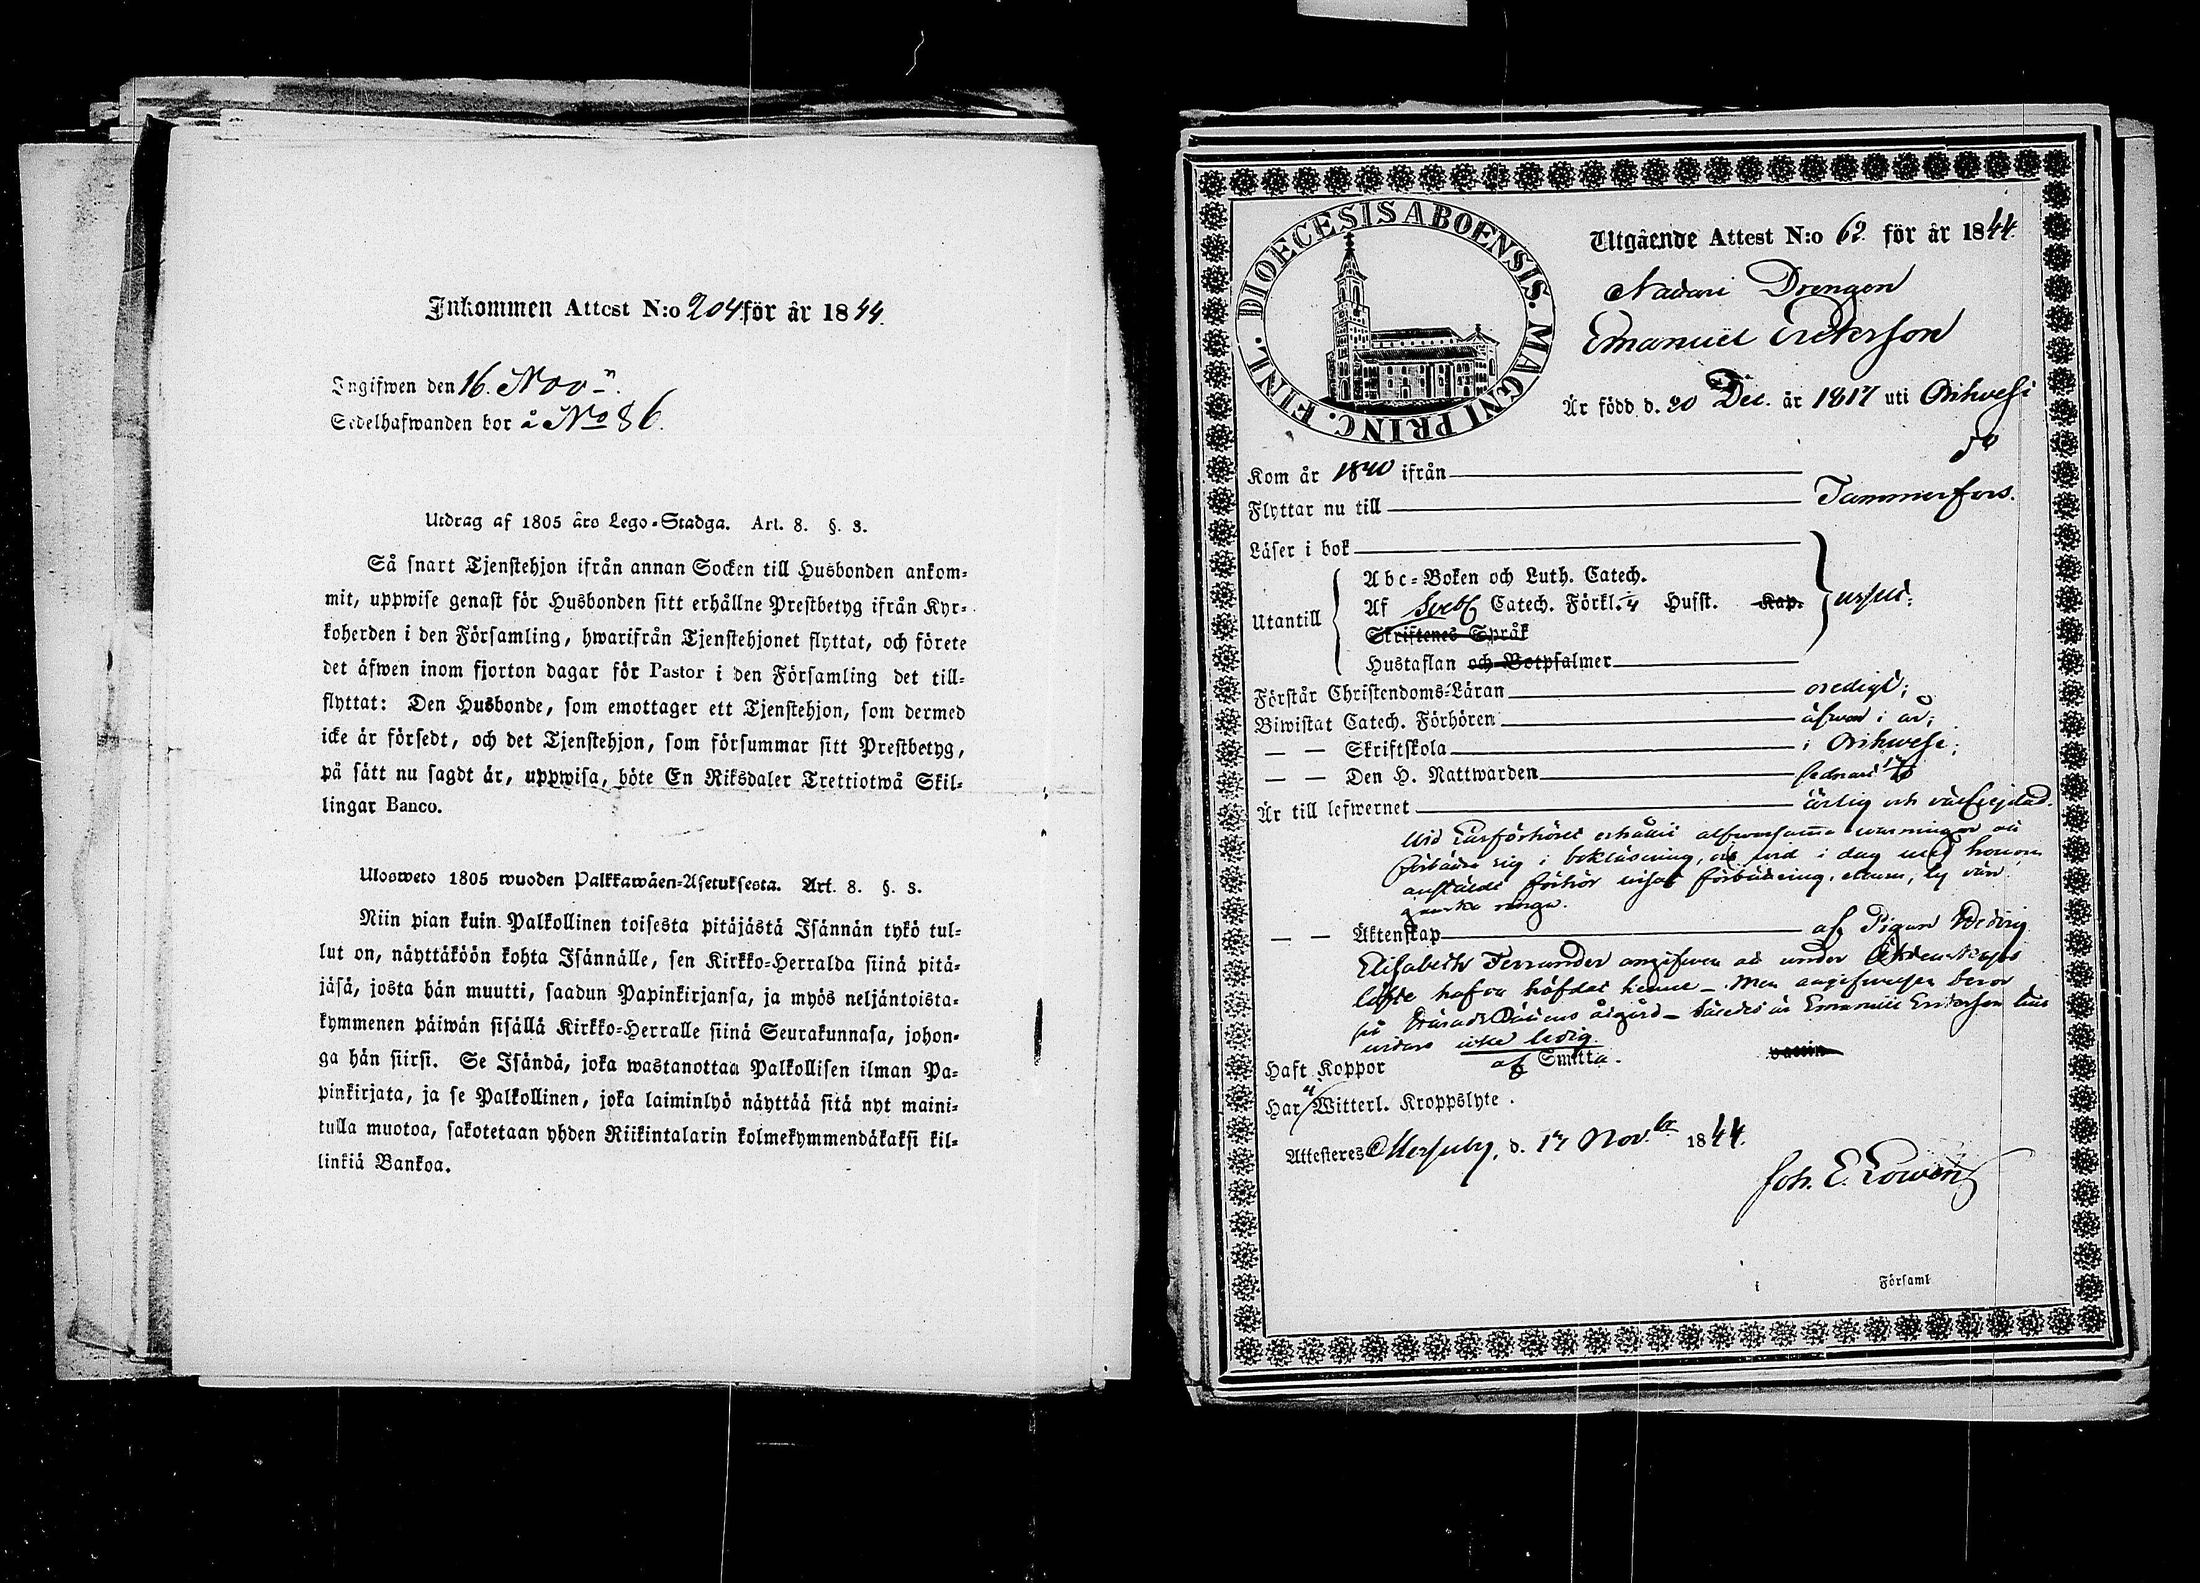 Inkommen Attest N:o 204 för år 1844.
Ingifwen den 16. Nov
Sedelhafwanden bor å No 86.
Utdrag af 1805 års Lego-Stadga. Art. 8. §. 3.
Så snart Tjenstehjon ifrån annan Socken till Husbonden ankom-
mit, uppwise genast för Husbonden sitt erhållne Prestbetyg ifrån Kyr-
koherden i den Församling, hwarifrån Tjenstehjonet flyttat, och förete
det äfwen inom fjorton dagar för Pastor i den Församling det till-
flyttat: Den Husbonde, som emottager ett Tjenstehjon, som dermed
icke är försedt, och det Tjenstehjon, som försummar sitt Prestbetyg,
på sätt nu sagdt är, uppwisa, böte En Riksdaler Trettiotwå Skil-
lingar Banco.
Ulosweto 1805 wuoden Palkkawäen-Asetuksesta. Art. 8. §. 3.
Niin pian kuin Palkollinen toisesta pitäjästä Isännän tykö tul-
lut on, näyttäköön kohta Isännälle, sen Kirkko-Herralda siinä pitä-
jäsä, josta hän muutti, saadun Papinkirjansa, ja myös neljäntoista-
kymmenen päiwän sisällä Kirkko-Herralle siinä Seurakunnasa, johon-
ga hän siirsi. Se Isändä, joka wastanottaa Palkollisen ilman Pa-
pinkirjata, ja se Palkollinen, joka laiminlyö näyttää sitä nyt maini-
tulla muotoa, sakotetaan yhden Riikintalarin kolmekymmendäkaksi kil-
linkiä Bankoa.
DIOECESIS ABOENSIS. MAGNI PRINC. FINL.
Utgående Attest N:o 62 för år 1844.
Drengen
Emanuel Erikerson
Är född d. 20 Dec. år 1817 uti Orihvesi
Kom år 1840 ifrån
Flyttar nu till Tammerfors.
Läser i bok
Utantill
Abc-Boken och Luth. Catech.
Af Sveb Catech. Förkl. Husst. Kap.
Skriftenes Språk
Hustaflan och Botpsalmer
Förstår Christendoms-Läran oredigt;
Biwistat Catech. Förhören äfven i år;
— — Skriftskola i Orihvesi;
— — Den H. Nattwarden sednast
Är till lefwernet ärlig och välfrejdad.
Vid Läsförhöret erhållit alfvarsamma varningar att
förbättra sig i bokläsning, vid i dag med honom
anstäldt förhör visat förbättring, ännu,
ganska ringa.
— — Äktenskap af Pigan Hedvig
Elisabeth Fernander angifven att under Äktenskaps
löfte hafva häfdat henne – Men angifvelsen beror
på åtgärd – således är Emanuel Erikerson
vidare icke ledig.
Haft Koppor af Smitta.
Har Witterl. Kroppslyte.
Attesteras Messuby, d. 17 Nov.br 1844.
Joh. E. Lowén
i Församl